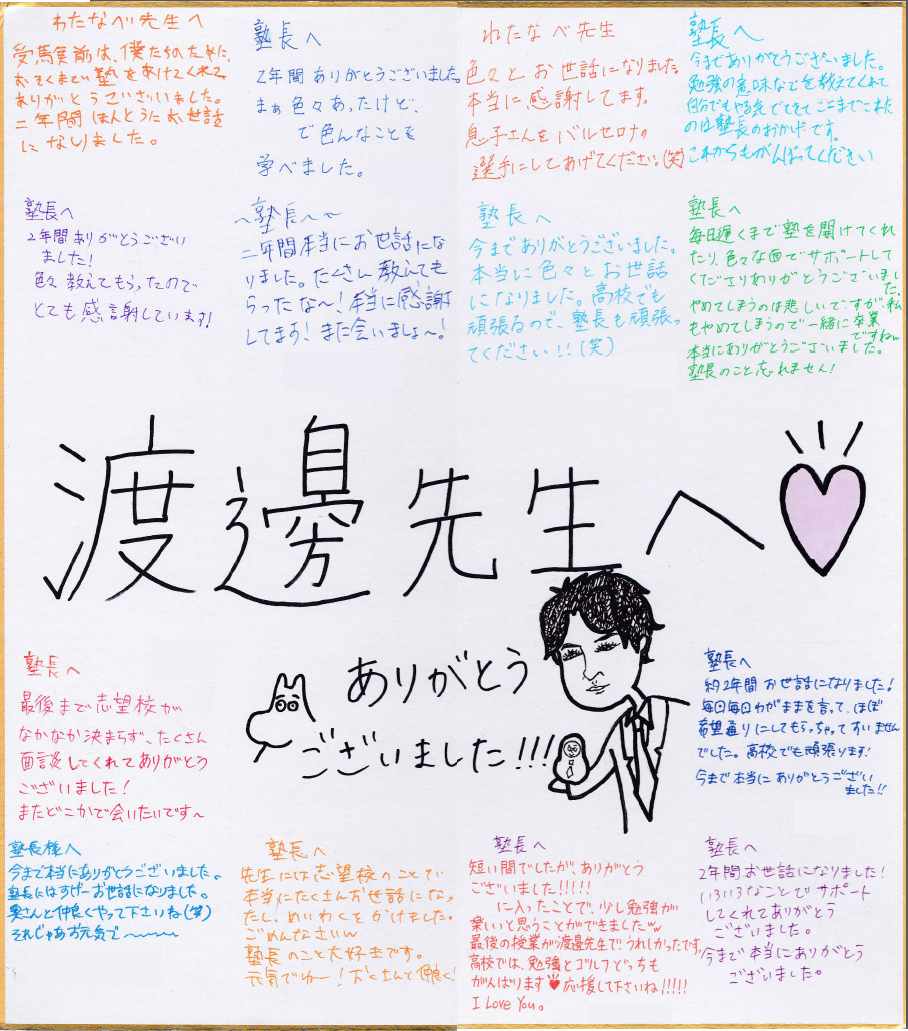 わたなべ先生へ
受験前は、僕たちのために、
おそくまでい塾をあけてくれて
ありがとうございいました。
二年間ほんとうにお世話
になりました。
塾長へ
2年間ありがとうございました。
まぁ色々あったけど、
で色んなことを
学べました。
わたなべ先生
色々とお世話になりました。
本当に感謝してます。
息子さんをバルセロナの
選手にしてあげてください(笑)
塾長へ
今までありがとうございました。
勉強の意味などを教えてくれて
自分でもやる気でてきてここまでこれた
のは塾長のおかげです。
これからもがんばってください
塾長へ
2年間ありがとうござい
ました!
色々教えてもらったので
とても感謝しています!
〜塾長へ〜
二年間本当にお世話にな
りました。たくさん教えても
らったな〜!本当に感謝
してます!また会いましょ〜!
塾長へ
今までありがとうございました。
本当に色々とお世話
になりました。高校でも
頑張るので、塾長も頑張っ
てください!!(笑)
塾長へ
毎日遅くまで塾を開けてくれ
たり、色々な面でサポートして
くださりありがとうございました。
やめてしまうのは悲しいですが、私
もやめてしまうので一緒に卒業
ですねw
本当にありがとうございました。
塾長のこと忘れません!
渡邊先生へ
ありがとう
ございました!!!
塾長へ
最後まで志望校が
なかなか決まらず、たくさん
面談してくれてありがとう
ございました!
またどこかで会いたいです〜
塾長へ
約2年間お世話になりました!
毎日毎日わがままを言って、ほぼ
希望通りにしてもらっちゃってすいません
でした。高校でも頑張ります!
今まで本当にありがとうござい
ました!!
塾長様へ
今まで本当にありがとうございました。
塾長にはすげーお世話になりました。
奥さんと仲良くやって下さいね(笑)
それじゃあお元気で〜〜〜
塾長へ
先生には志望校のことで
本当にたくさんお世話になっ
たし、めいわくをかけました。
ごめんなさいw
塾長のこと大好きです。
元気でねー!おくさんと仲良く!
塾長へ
短い間でしたが、ありがとう
ございました!!!!!
に入ったことで、少し勉強が
楽しいと思うことができましたw
最後の授業が渡邊先生で、うれしかったです。
高校では、勉強とゴルフどっちも
がんばります♥応援して下さいね!!!!!
I Love You。
塾長へ
2年間お世話になりました!
いろいろなことでサポート
してくれてありがとう
ございました。
今まで本当にありがとう
ございました。